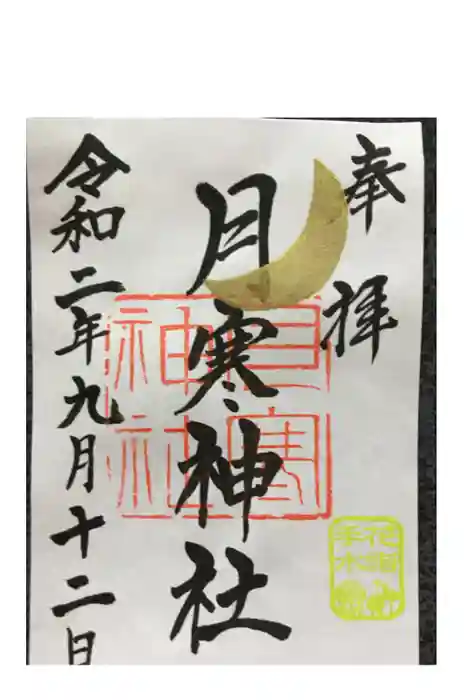 奉拝
月寒神社
月寒神社
花塚手水
令和二年九月十二日